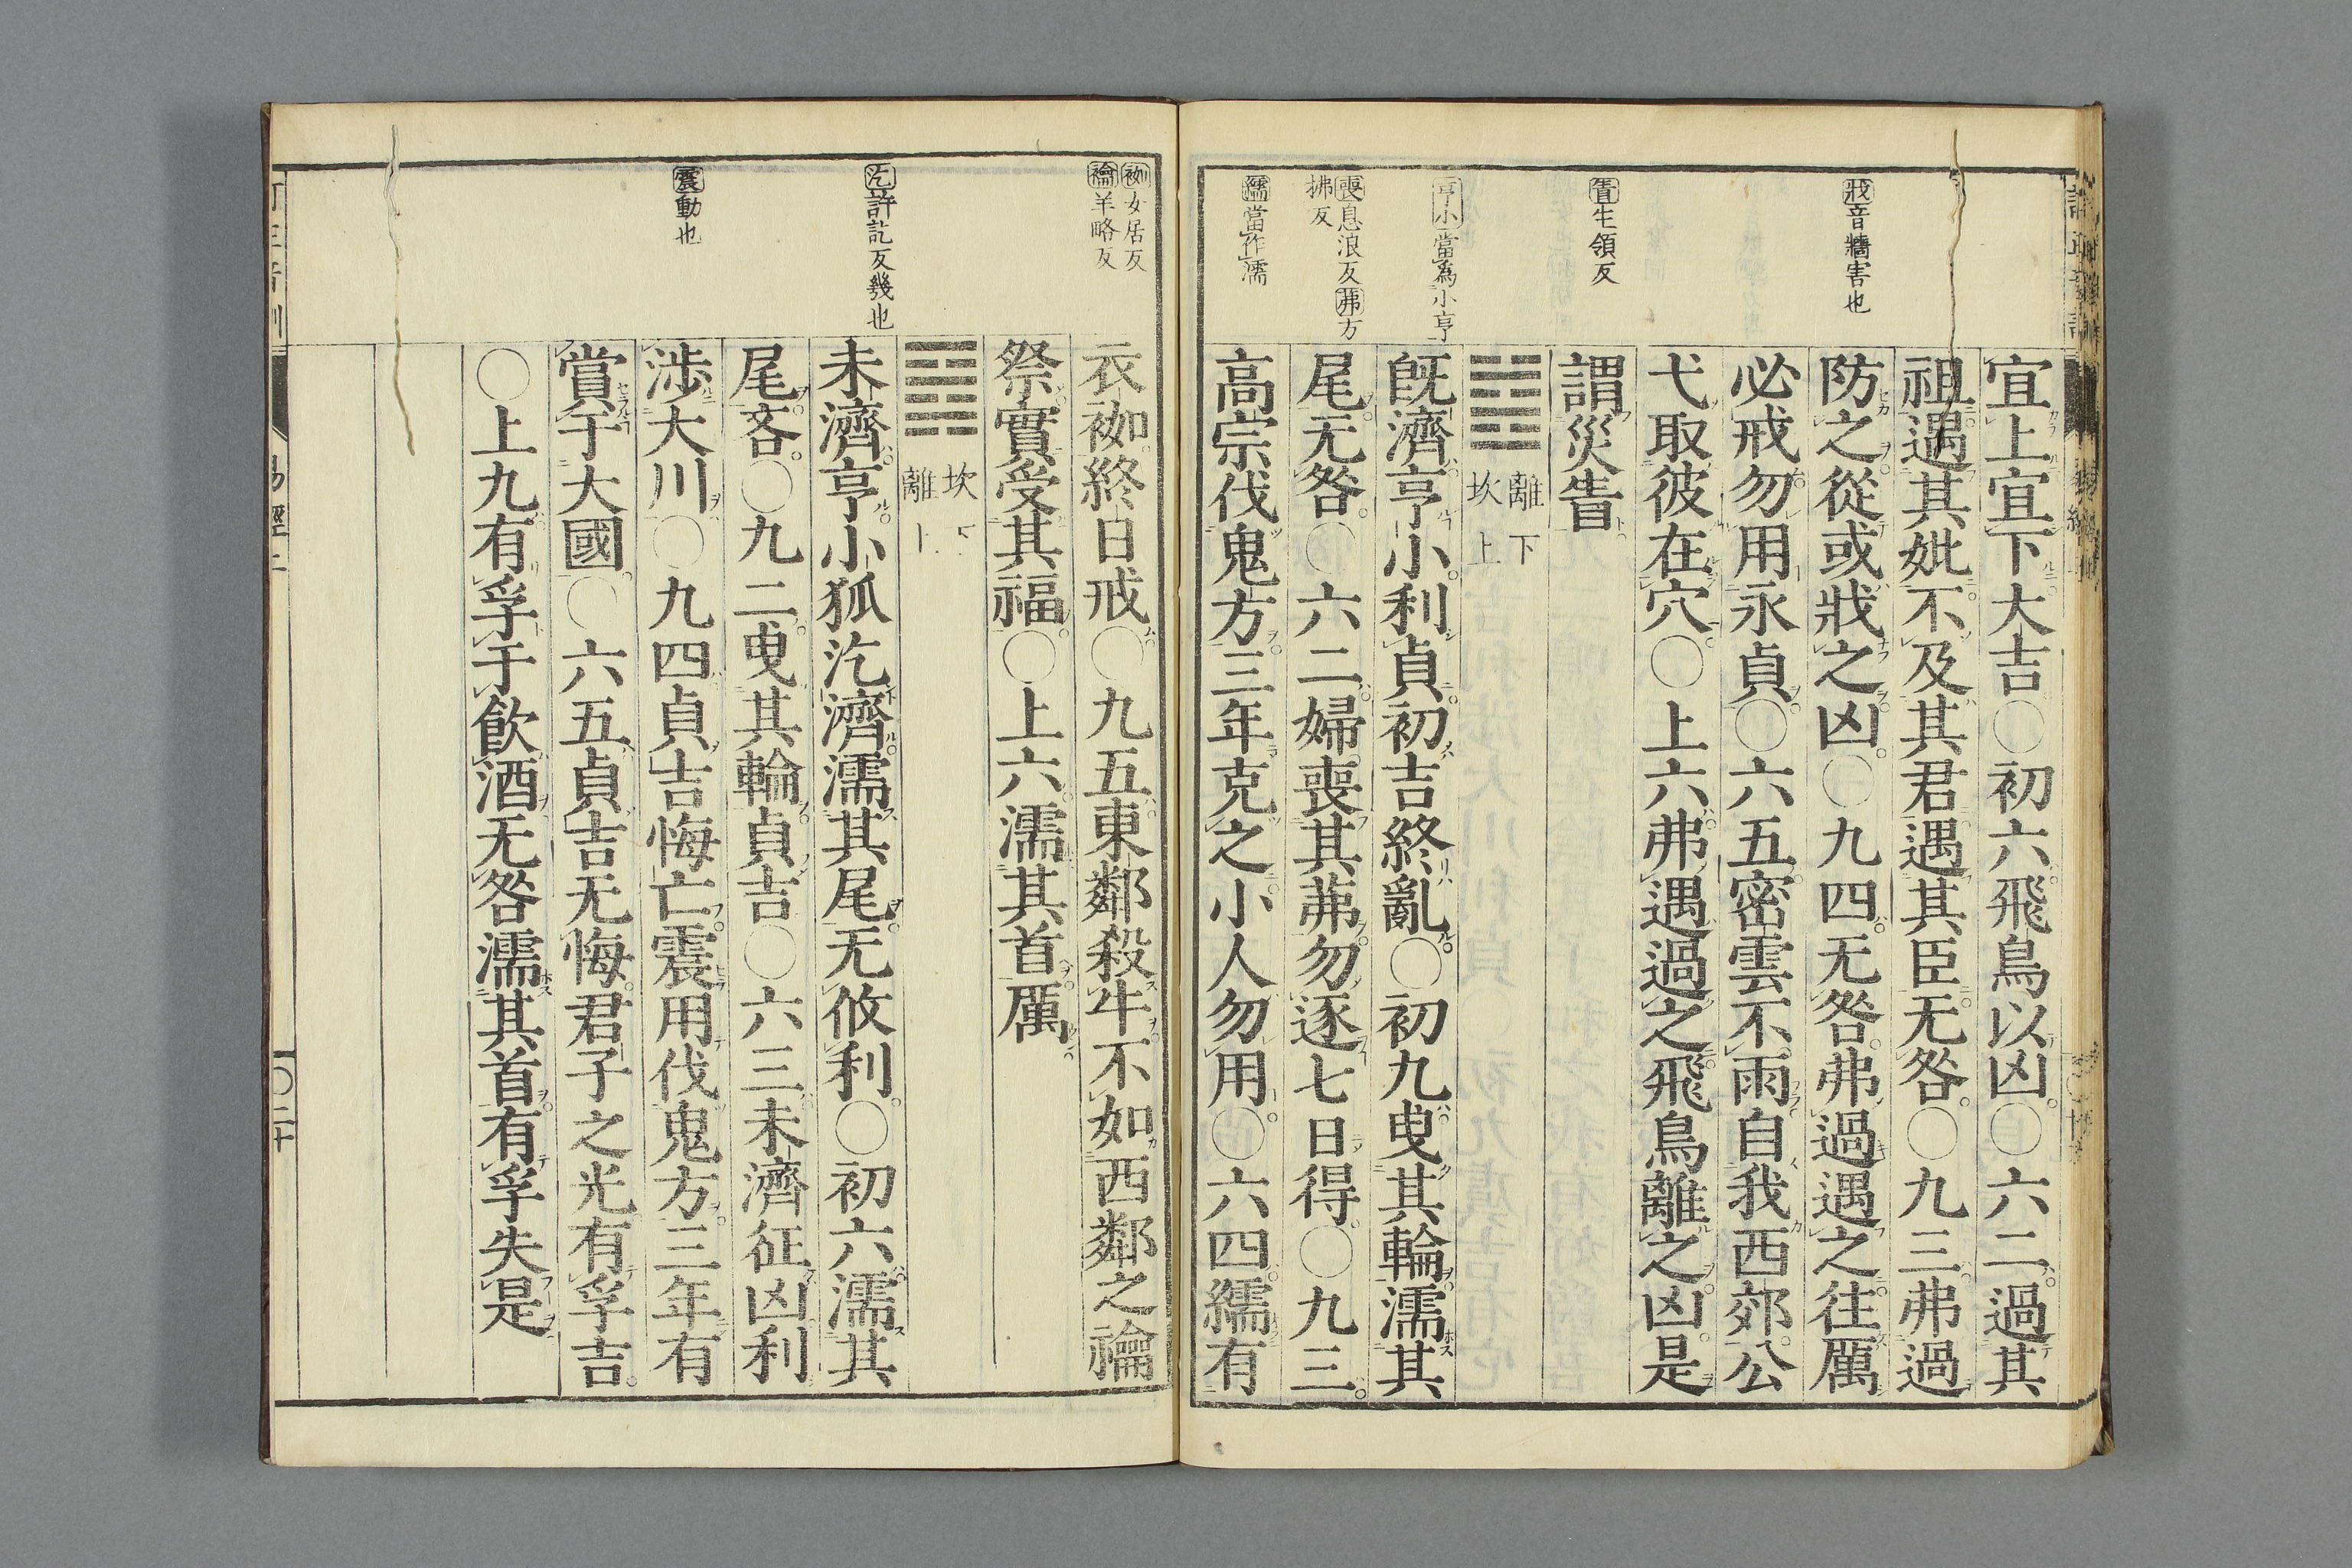 戕音牆害也
眚生領反
亨小當為小亨
喪息浪反茀方
拂反
繻當作濡
宜上宜下大吉○初六飛鳥以凶○六二過其
祖遇其妣不及其君遇其臣无咎○九三弗過
防之從或戕之凶○九四无咎弗過遇之往厲
必戒勿用永貞○六五密雲不雨自我西郊公
弋取彼在穴○上六弗遇過之飛鳥離之凶是
謂災眚
離下
坎上
旣濟亨小利貞初吉終亂○初九曳其輪濡其
尾无咎○六二婦喪其茀勿逐七日得○九三
高宗伐鬼方三年克之小人勿用○六四繻有
袽女居反
禴羊略反
汔許訖反幾也
震動也
衣袽終日戒○九五東鄰殺牛不如西鄰之禴
祭實受其福○上六濡其首厲
坎下
離上
未濟亨小狐汔濟濡其尾无攸利○初六濡其
尾吝○九二曳其輪貞吉○六三未濟征凶利
涉大川○九四貞吉悔亡震用伐鬼方三年有
賞于大國○六五貞吉无悔君子之光有孚吉
○上九有孚于飮酒无咎濡其首有孚失是